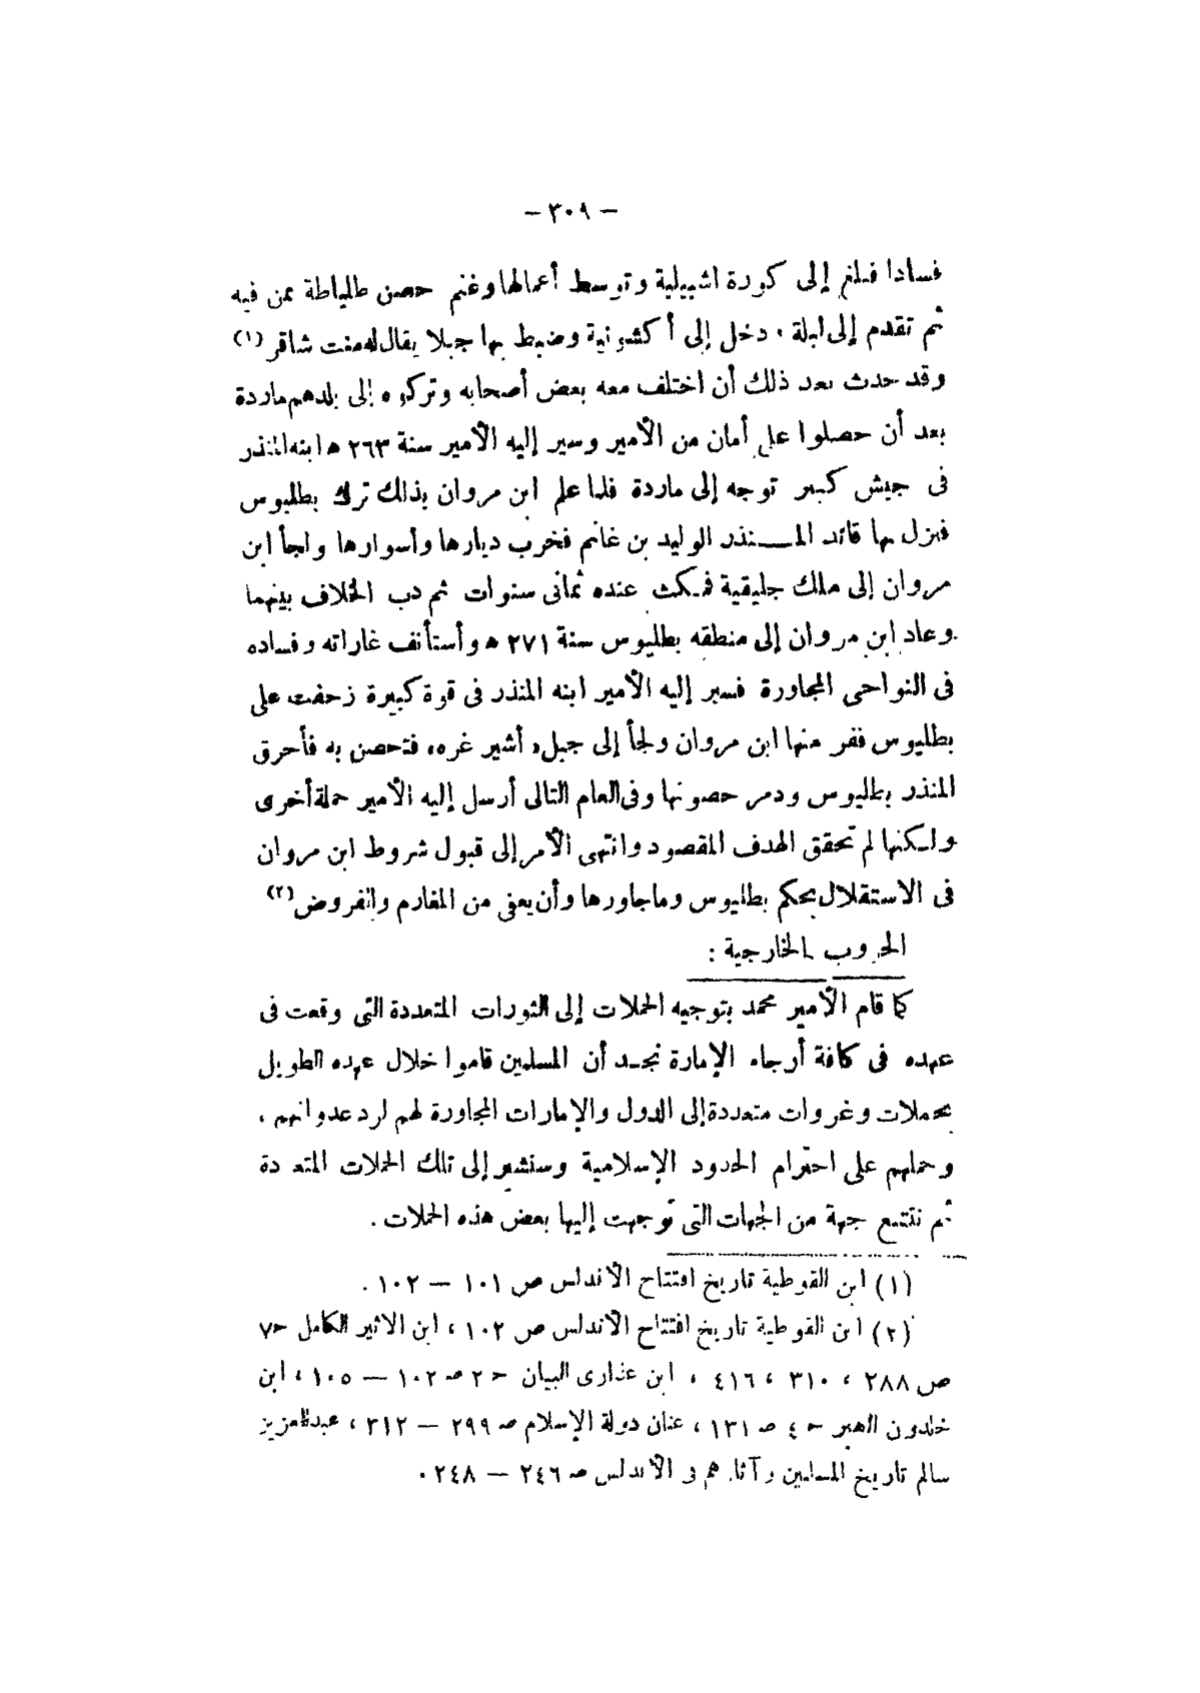 — ٣٠٩ —
فسادا فبلغ إلى كورة اشبيلية وتوسط أعمالها وغنم حصن طلياطة بمن فيه
ثم تقدم إلى لبلة ، دخل إلى أكشونية وضبط بها جبلا يقال له منت شاقر (١)
وقد حدث بعد ذلك أن اختلف معه بعض أصحابه وتركوه إلى بلدهم ماردة
بعد أن حصلوا على أمان من الأمير وسير إليه الأمير سنة ٢٦٣ ه ابنه المنذر
فى جيش كبير توجه إلى ماردة فلما علم ابن مروان بذلك ترك بطليوس
فنزل بها قائد المــنذر الوليد بن غانم فخرب ديارها وأسوارها ولجأ ابن
مروان إلى ملك جليقية فمكث عنده ثمانى سنوات ثم دب الخلاف بينهما
وعاد ابن مروان إلى منطقه بطليوس سنة ٢٧١ ه وأستأنف غاراته وفساده
فى النواحى المجاورة فسير إليه الأمير ابنه المنذر فى قوة كبيرة زحفت على
بطليوس ففر منها ابن مروان ولجأ إلى جبل، أشير غره، فتحصن به فأحرق
المنذر بطليوس ودمر حصونها وفى العام التالى أرسل إليه الأمير حملة أخرى
ولكنها لم تحقق الهدف المقصود وانتهى الأمر إلى قبول شروط ابن مروان
فى الاستقلال بحكم بطليوس وماجاورها وأن يعفى من المغارم والفروض (٢)
الحروب الخارجية :
كما قام الأمير محمد بتوجيه الحملات إلى الثورات المتعددة التى وقعت فى
عهده فى كافة أرجاء الإمارة نجد أن المسلمين قاموا خلال عهده الطويل
بحملات وغزوات متعددة إلى الدول والإمارات المجاورة لهم لرد عدوانهم ،
وحملهم على احترام الحدود الإسلامية وسنشير إلى تلك الحملات المتعددة
ثم نتتبع جهة من الجهات التى توجهت إليها بعض هذه الحملات .
(١) ابن القوطية تاريخ افتتاح الأندلس ص ١٠١ — ١٠٢ .
(٢) ابن القوطية تاريخ افتتاح الأندلس ص ١٠٢ ، ابن الاثير الكامل ح٧
ص ٢٨٨ ، ٣١٠ ، ٤١٦ ، ابن عذارى البيان ح ٢ ص ١٠٢ — ١٠٥ ، ابن
خلدون العبر ح ٤ ص ١٣١ ، عنان دولة الإسلام ص ٢٩٩ — ٣١٢ ، عبدالعزيز
سالم تاريخ المسلمين وآثارهم فى الأندلس ص ٢٤٦ — ٢٤٨ .